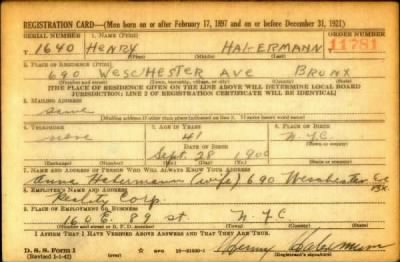 REGISTRATION CARD—(Men born on or after February 17, 1897 and on or before December 31, 1921)
SERIAL NUMBER 1. NAME (Print) ORDER NUMBER
T 1640 HENRY HABERMANN 11781
(First) (Middle) (Last)
2. PLACE OF RESIDENCE (Print)
690 WESCHESTER AVE BRONX
(Number and street) (Town, township, village, or city) (County) (State)
[THE PLACE OF RESIDENCE GIVEN ON THE LINE ABOVE WILL DETERMINE LOCAL BOARD
JURISDICTION; LINE 2 OF REGISTRATION CERTIFICATE WILL BE IDENTICAL]
3. MAILING ADDRESS
same
[Mailing address if other than place indicated on line 2. If same insert word same]
4. TELEPHONE 5. AGE IN YEARS 6. PLACE OF BIRTH
none 41 N.Y.C.
DATE OF BIRTH (Town or county)
Sept. 28 1900
(Exchange) (Number) (Mo.) (Day) (Yr.) (State or country)
7. NAME AND ADDRESS OF PERSON WHO WILL ALWAYS KNOW YOUR ADDRESS
Anna Habermann (wife) 690 Weschester Bx.
8. EMPLOYER'S NAME AND ADDRESS
Reality Corp.
9. PLACE OF EMPLOYMENT OR BUSINESS
160 E. 89 st N.Y.C
(Number and street or R. F. D. number) (Town) (County) (State)
I AFFIRM THAT I HAVE VERIFIED ABOVE ANSWERS AND THAT THEY ARE TRUE.
D. S. S. Form 1
(Revised 1-1-42) (over) GPO 16—21630-1 Henry Habermann
(Registrant's signature)